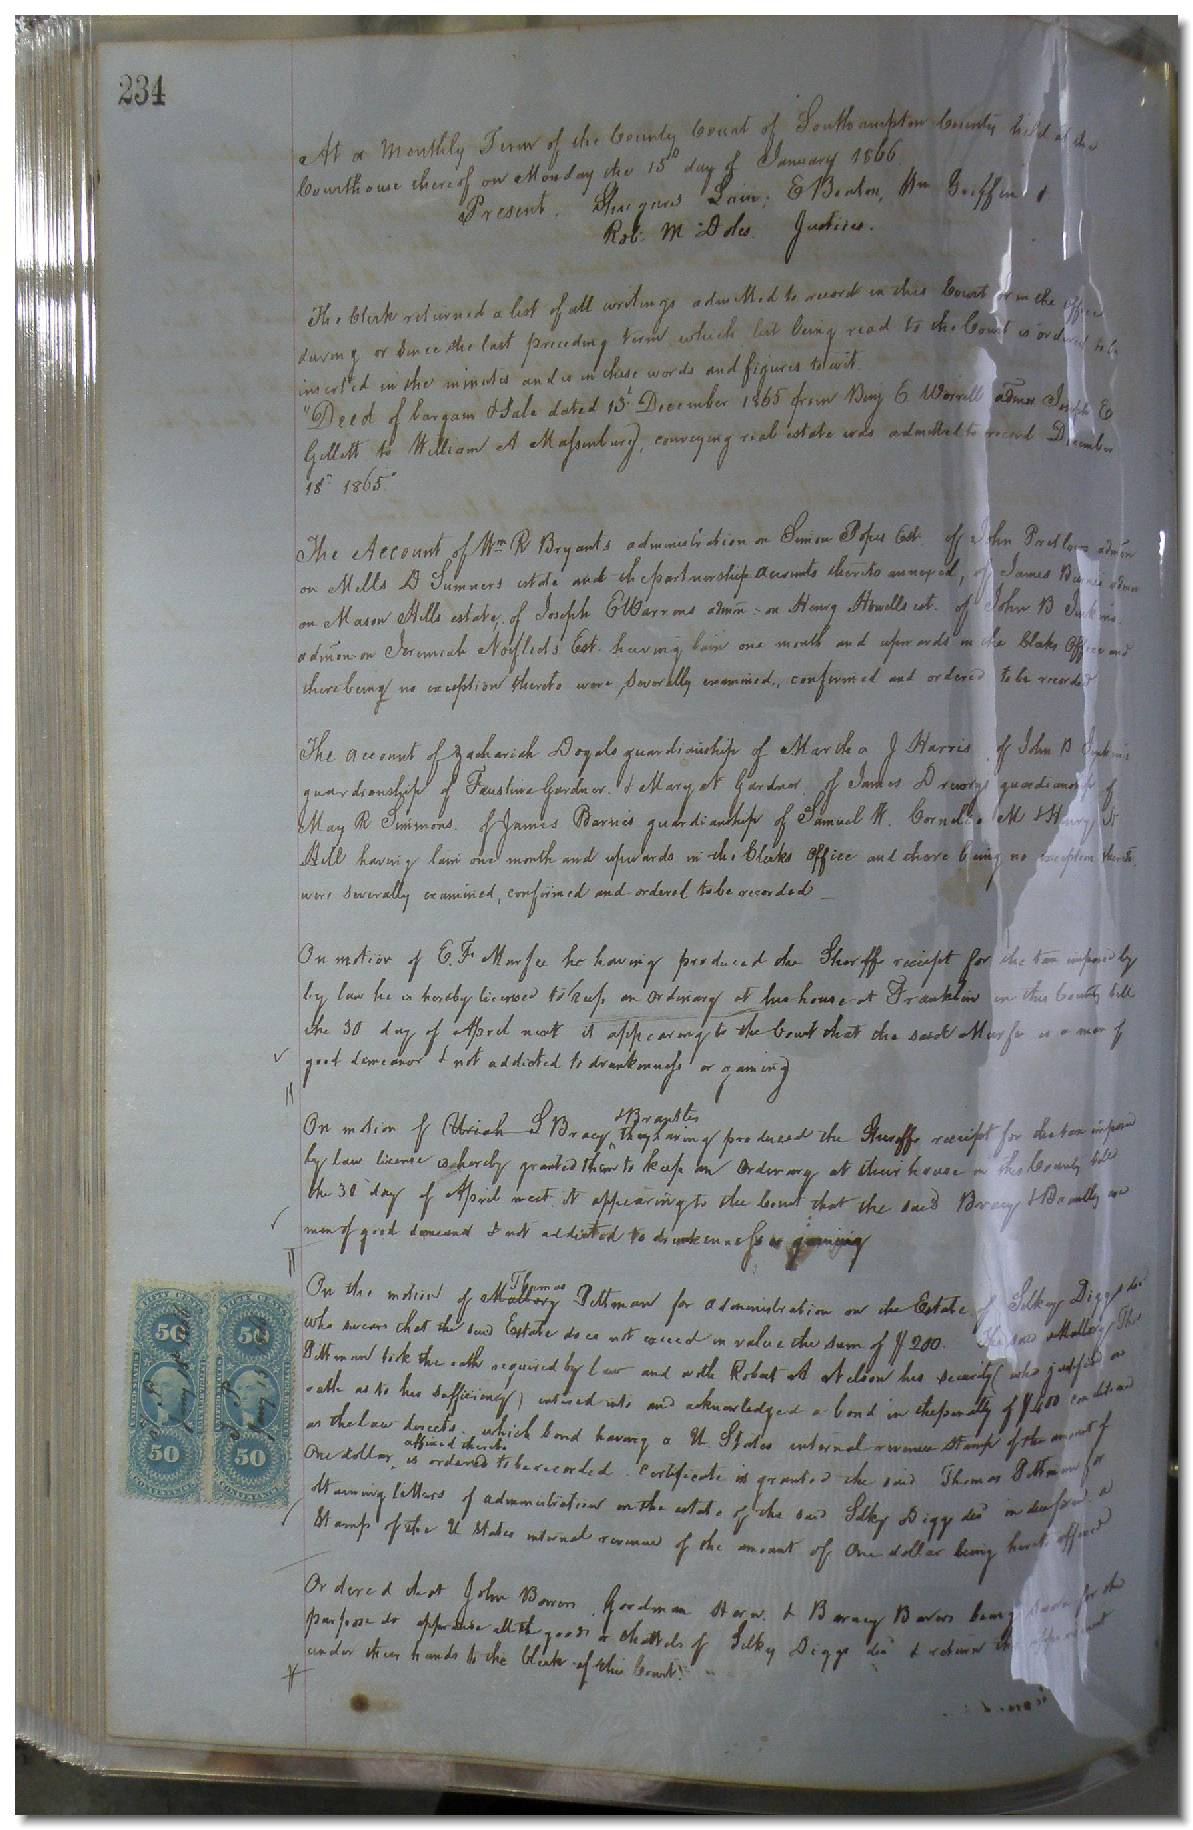 234
At a Monthly Term of the County Court of Southampton County held at the
Courthouse thereof on Monday the 15th day of January 1866
Present. E Beaton, Wm Griffin &
Rob. M Doles Justices.
The Clerk returned a list of all writings admitted to record in this Court or in the Office
during or since the last preceding term which list being read to the Court is ordered to be
inserted in the minutes and is in these words and figures to wit.
"Deed of bargain & Sale dated 15 December 1865 from Benj E Worrell admor Joseph E
Gillett to William A Massenburg, conveying real estate was admitted to record December
18 1865"
The Account of Wm R Bryants administration on Simon Popes Est. of John Pretlow admon
on Mills D Sumners estate and the partnership accounts thereto annexed, of James Barnes admon
on Mason Hills estate, of Joseph E Warrens admn on Henry Howells est. of John B Jenkins
admon on Jeremiah Norfleets Est. having lain one month and upwards in the Clerks Office and
there being no exception thereto were severally examined, confirmed and ordered to be recorded
The account of Zachariah guardianship of Martha J Harris, of John B Jenkins
guardianship of Faustina Gardner & Mary A Gardner, of James Drewrys guardianship of
May R Simmons. of James Barnes guardianship of Samuel H. Cornelia M & Henry
Hill having lain one month and upwards in the Clerks Office and there being no exception thereto
were severally examined, confirmed and ordered to be recorded
On motion of E. F. Murfee he having produced the Sheriffs receipt for the tax imposed by
by law he is hereby licensed to keep an ordinary at his house at Franklin in this County till
the 30 day of April next it appearing to the Court that the said Murfee is a man of
good demeanor & not addicted to drunkenness or gaming
& Brantley
On motion of Uriah S Bracy they having produced the Sheriffs receipt for the tax imposed
by law license is hereby granted them to keep an ordinary at their house in this County till
the 30 day of April next it appearing to the Court that the said Bracy & Brantly are
men of good demeanor & not addicted to drunkenness or gaming
Thomas
On the motion of Mallory Pittman for administration on the Estate of Silkey Diggs dec
who swears that the said Estate does not exceed in value the sum of $200. The said Mallory Tho
Pittman took the oath required by law and with Robert A Nelson his security (who justified on
oath as to his sufficiency) entered into and acknowledged a bond in the penalty of $400 conditioned
as the law directs, which bond having a U. States internal revenue stamp of the amount of
affixed thereto
One dollar, is ordered to be recorded. Certificate is granted the said Thomas Pittman for
obtaining letters of administration on the estate of the said Silky Diggs dec in due form a
Stamp of the U States internal revenue of the amount of One dollar being hereto affixed
Ordered that John Barrow, Goodman & Barney being sworn for the
purpose do appraise all the goods & chattels of Silky Diggs dec & return the appraisement
under their hands to the Clerk of this Court.
FIFTY CENTS
50
UNITED STATES
50
CONVEYANCE
FIFTY CENTS
50
50
CONVEYANCE